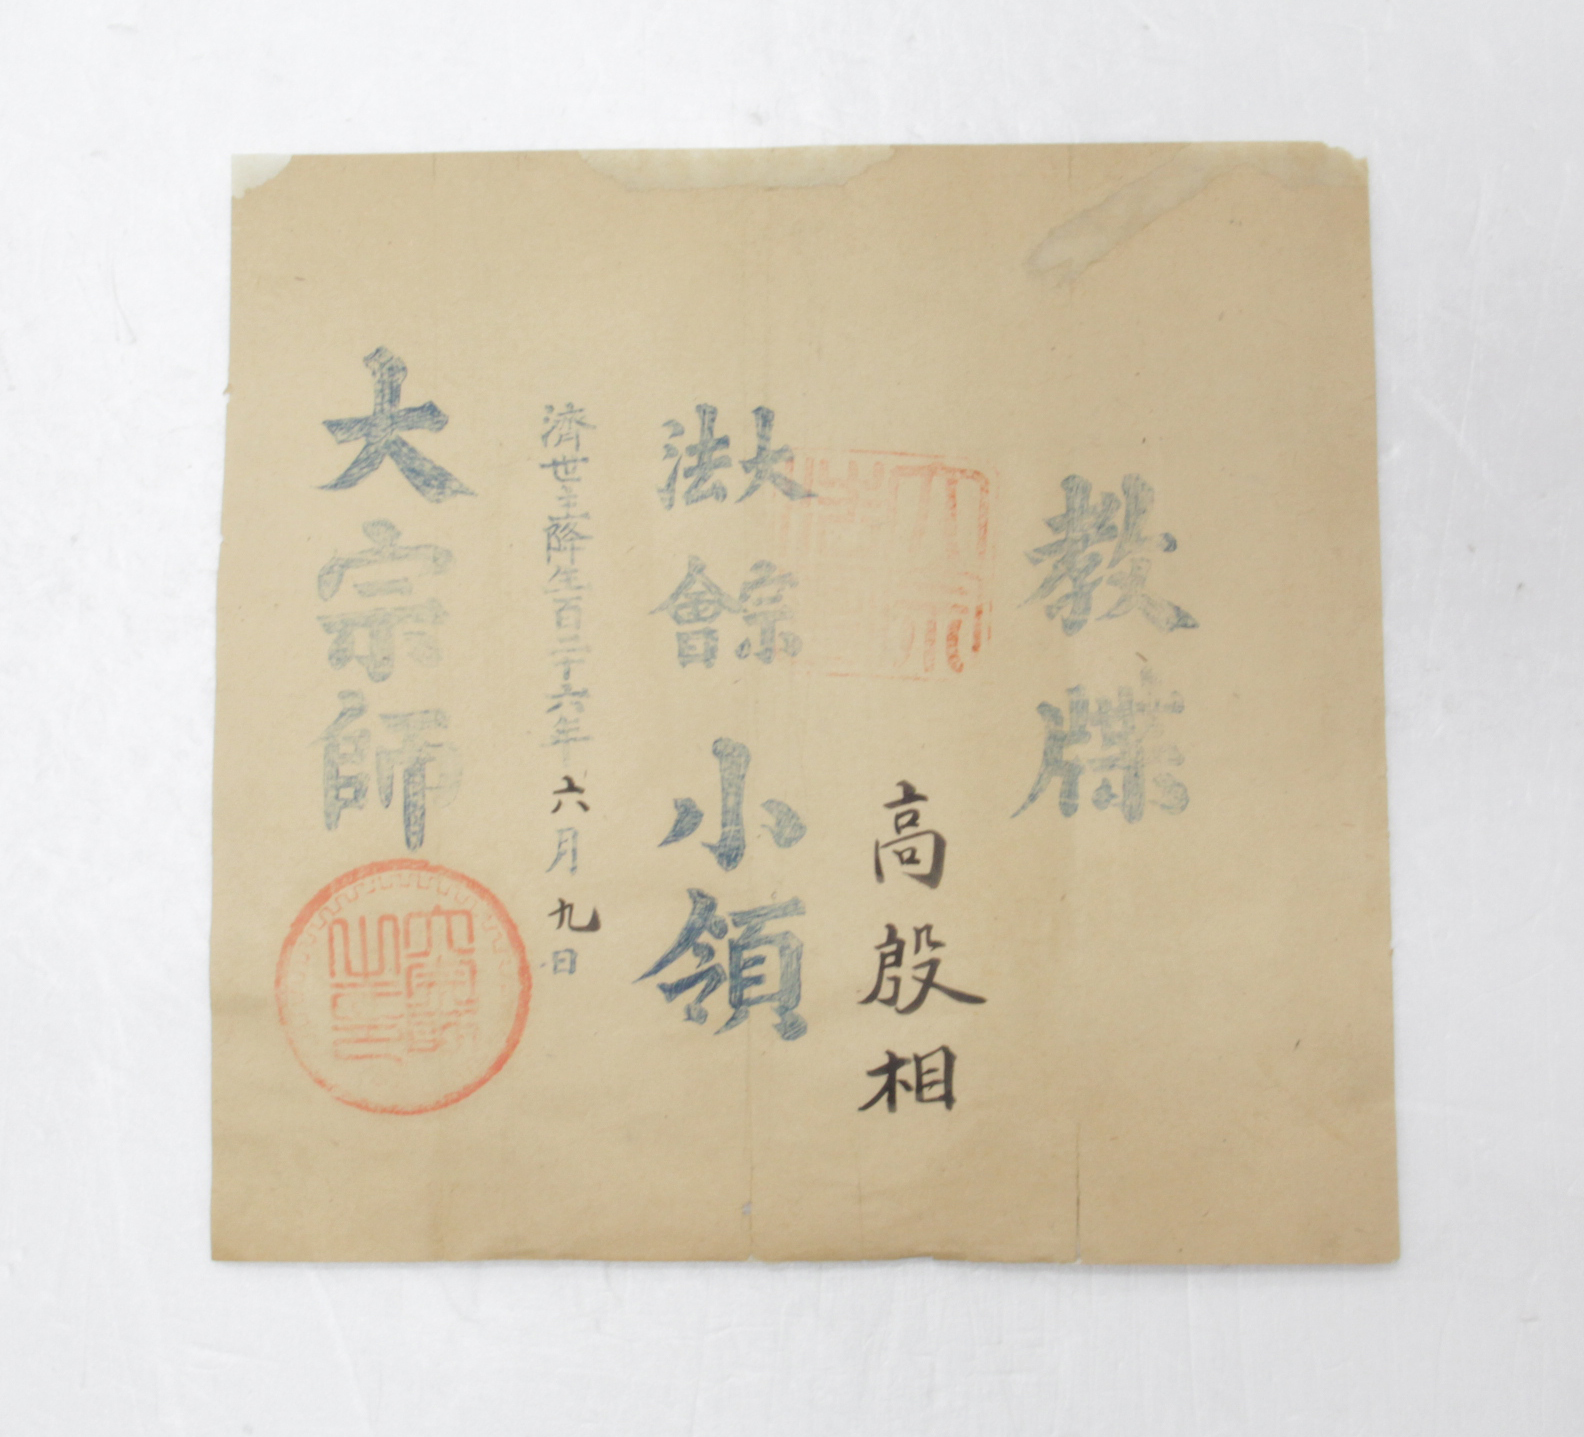 教牒
高殷相
大宗
法會
小領
濟世主降生百二十六年六月九日
大宗師